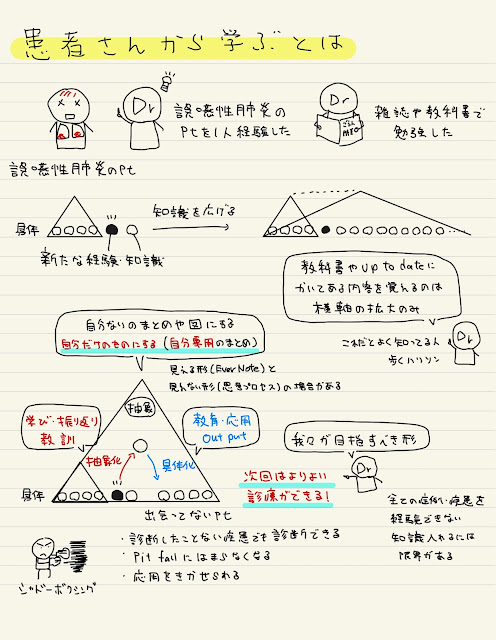 患者さんから学ぶとは
Dr
誤嚥性肺炎の
Ptを1人経験した
Dr
雑誌や教科書で
勉強した
誤嚥性肺炎のPt
具体
新たな経験・知識
知識を広げる
教科書やup to dateに
かいてある内容を覚えるのは
横軸の拡大のみ
これだとよく知ってる人
歩くハリソン
Dr
自分なりのまとめや図にする
自分だけのものにする(自分専用のまとめ)
見える形(EverNote)と
見えない形(思考プロセス)の場合がある
抽象
学び・振り返り
教訓
抽象化
具体化
教育・応用
Out put
具体
出会ってないPt
次回はよりよい
診療ができる!
我々が目指すべき形
Dr
全ての症例・疾患を
経験できない
知識入れるには
限界がある
・診断したことない疾患でも診断できる
・Pit fallにはまらなくなる
・応用をきかせられる
シャドーボクシング